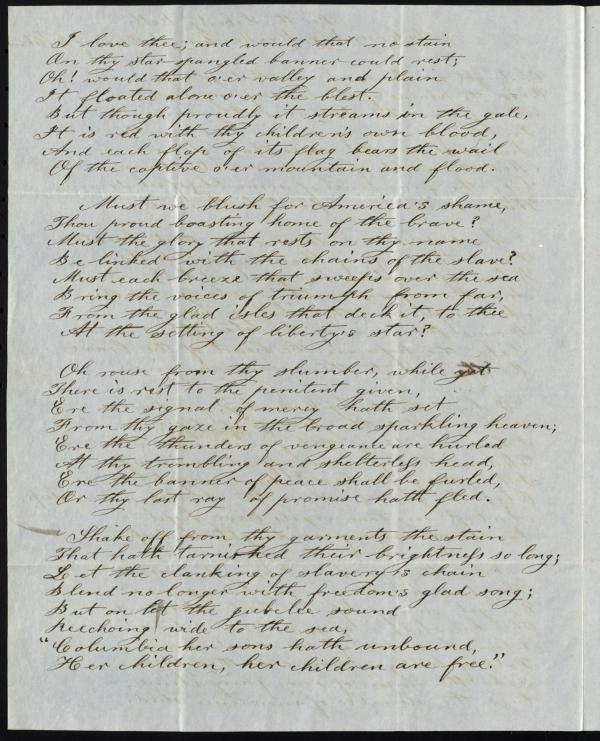 I love thee; and would that no stain
On thy star spangled banner could rest;
Oh! would that o'er valley and plain
It floated alone o'er the blest.
But though proudly it streams in the gale,
It is red with thy children's own blood,
And each flap of its flag bears the wail
Of the captive o'er mountain and flood.
Must we blush for America's shame,
Thou proud boasting home of the brave?
Must the glory that rests on thy name
Be linked with the chains of the slave?
Must each breeze that sweeps over the sea
Bring the voices of triumph from far,
From the glad isles that deck it, to thee
At the setting of liberty's star?
Oh rouse from thy slumber, while yet
There is rest to the penitent given,
Ere the signal of mercy hath set
From thy gaze in the broad sparkling heaven;
Ere the thunders of vengeance are hurled
At thy trembling and shelterless head,
Ere the banner of peace shall be furled,
Or thy last ray of promise hath fled.
Shake off from thy garments the stain
That hath tarnished their brightness so long;
Let the clanking of slavery's chain
Blend no longer with freedom's glad song;
But on let the jubelee sound
Reechoing wide to the sea,
"Columbia her sons hath unbound,
Her children, her children are free."